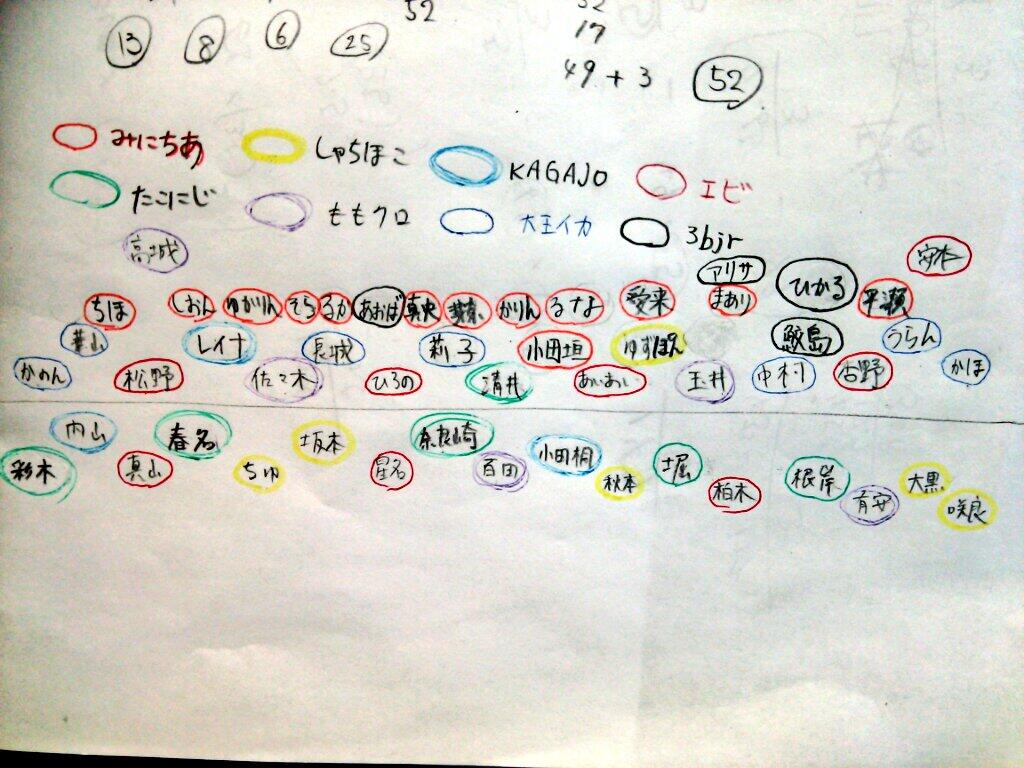 52
17
13 8 6 25
49 + 3 52
みにちあ しゃちほこ KAGAJO エビ
たこにじ ももクロ 大王イカ 3bjr
高城 アリサ ひかる 安本
ちほ しおん ゆかりん そら るか あおば 真央 かりん るなよ 愛来 まあり 平瀬
葉山 レイナ 長城 莉子 小田垣 ゆずぽん 鮫島 うらん
かのん 松野 佐々木 ひろの 清井 あいあい 玉井 中村 吉野 かほ
内山 春名 坂本 奈良崎 小田桐
彩木 真山 ちゆ 星名 百田 秋本 堀 柏木 根岸 有安 大黒 咲良